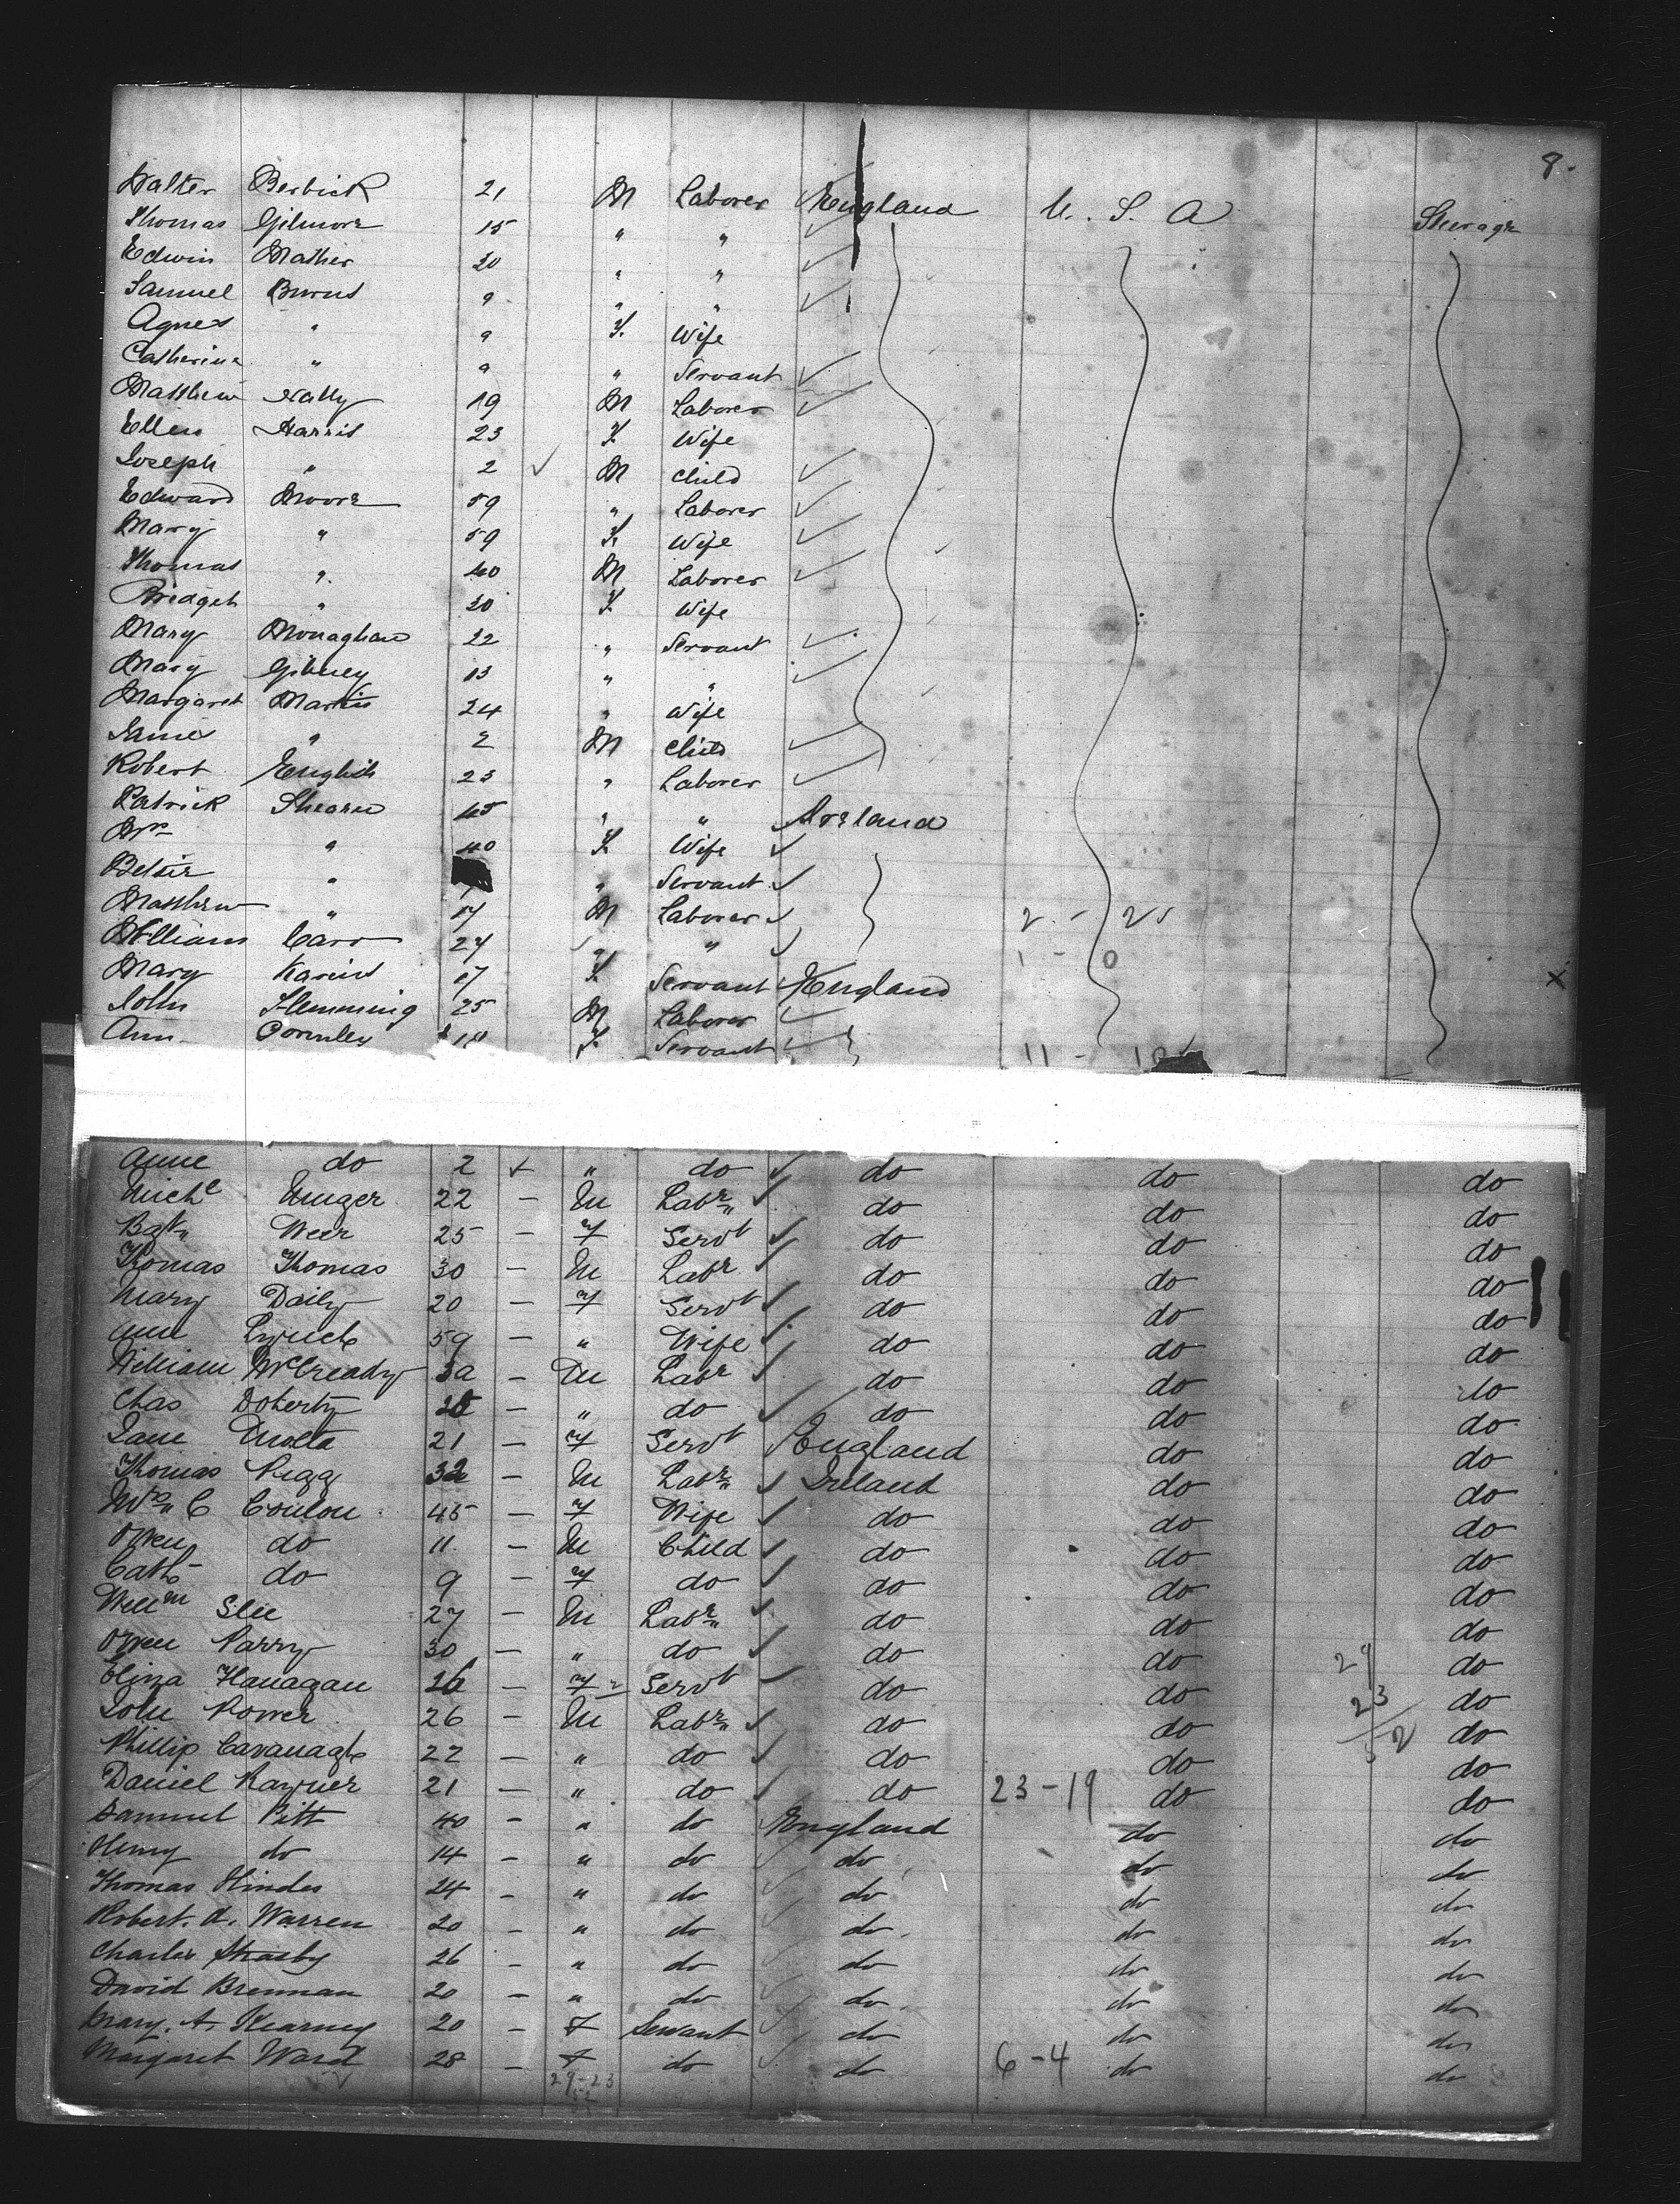 8.
Walter Berbick 21 M Laborer England U. S. A Steerage
Thomas Gilmore 15 " "
Edwin Mather 20 " "
Samuel Burns 9 " "
Agnes " 9 F. Wife
Catherine " 9 " Servant
Matthew Nally 19 M Laborer
Ellen Harris 23 F. Wife
Joseph " 2 M Child
Edward Moore 59 " Laborer
Mary " 59 F. Wife
Thomas " 40 M Laborer
Bridget " 30 F. Wife
Mary Monaghan 22 " Servant
Mary Gibney 13 " "
Margaret Martin 24 " Wife
James " 2 M Child
Robert English 23 " Laborer
Patrick Shearn 45 " " Ireland
Mrs " 40 F. Wife
Betsie " " Servant
Matthew " 17 M Laborer 2 - 25
William Carr 27 " " 1 - 0
Mary 17 F. Servant England X
John Flemming 25 M Laborer
Ann Gormley 18 F. Servant 11 - 10
Anne do 2 " do do do do
Michl 22 — M Labr do do do
Weir 25 — F Servt do do do
Thomas Thomas 30 — M Labr do do do
Mary Daily 20 — F Servt do do do
Ann Lynch 59 — " Wife do do do
William McCready 30 — M Labr do do do
Chas Doherty — " do do do do
Jane 21 — F Servt England do do
Thomas 32 — M Labr Ireland do do
Mrs C Conlon 45 — F Wife do do do
Owen do 11 — M Child do do do
Cath do 9 — F do do do do
Willm Slee 27 — M Labr do do do
Owen Parry 30 — " do do do 29 do
Eliza Flanagan 26 — F Servt do do 23 do
John Power 26 — M Labr do do 52 do
Phillip Cavanagh 22 — " do do do do
Daniel Rayner 21 — " do do 23-19 do do
Samuel Pitt 40 - " do England do do
Henry do 14 - " do do do do
Thomas Hindes 24 - " do do do do
Robert. A. Warren 20 - " do do do do
Charles 26 - " do do do do
David Brennan 20 - " do do do do
Mary. A. Kearney 20 - F Servant do do do
Margaret Ward 28 - F do do 6-4 do do
29-23
52